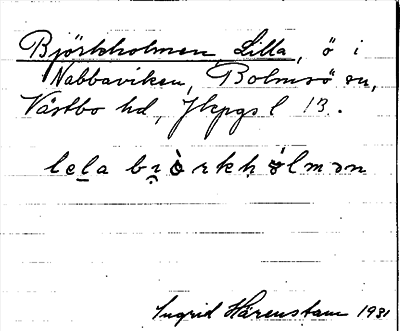 Björkholmen, Lilla, ö i
Nabbaviken, Bolmsö sn,
Västbo hd, Jkpgs l 13.
lela bi̯ò̱rkhólmən
Ingrid Härenstam 1931